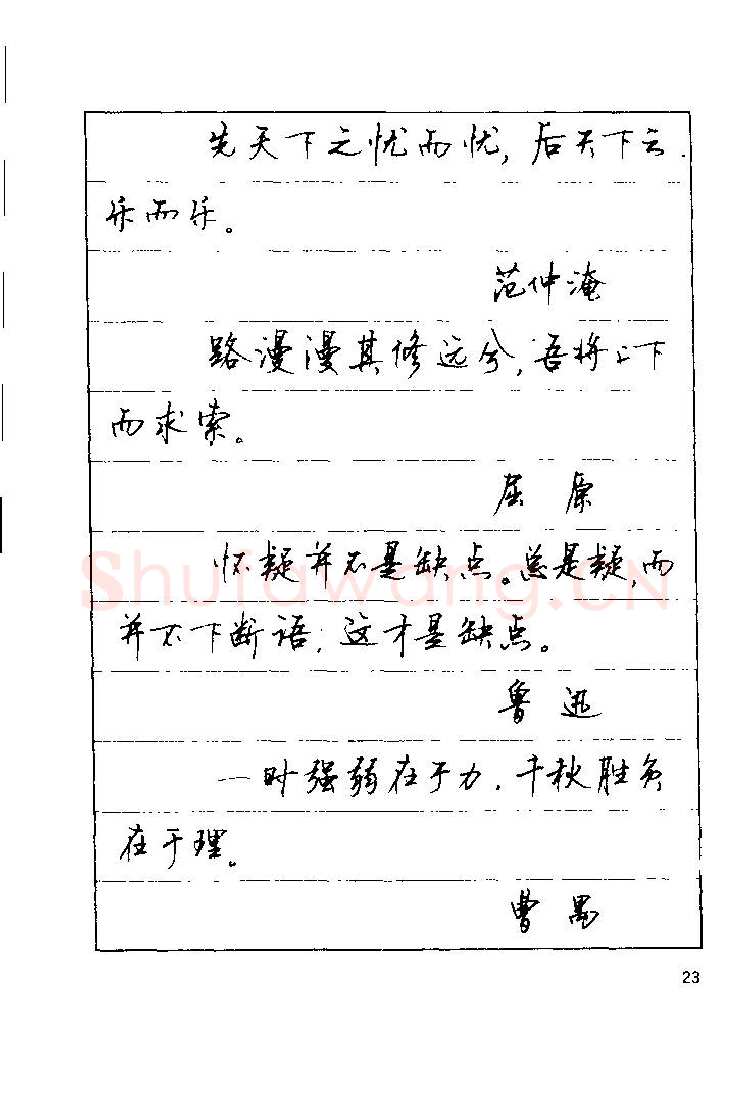 先天下之忧而忧，后天下之
乐而乐。
范仲淹
路漫漫其修远兮，吾将上下
而求索。
屈原
怀疑并不是缺点。总是疑，而
并不下断语，这才是缺点。
鲁迅
一时强弱在于力，千秋胜负
在于理。
曹禺
23
Shufawang.CN